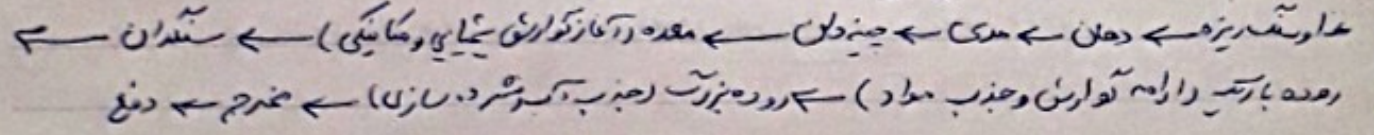 غذا و سنگریزه ← دهان ← مری ← چینه دان ← معده (آغاز گوارش شیمیایی و مکانیکی) ← سنگدان ←
روده باریک (ادامه گوارش و جذب مواد) ← روده بزرگ (جذب آب و فشرده سازی) ← مخرج ← دفع